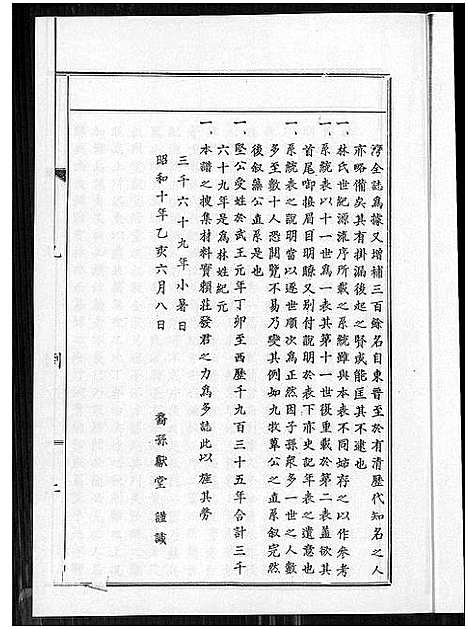 淳全誌為據又增補三百餘名自東晉至於有清歷代知名之人
亦略備矣其有掛漏後起之賢或能匡其不逮也
一林氏世紀源流序所載之系統雖與本表不同姑存之以作參考
一系統表以十一世為一表其第十一世復重載於第二表蓋欲其
首尾啣換眉目明瞭又別付說明於表下亦史記年表之遺意也
一系統表之說明當以逐世順次為正然因子孫眾多一世之人數
多至數十人恐閱覽不易乃變其例如九牧葦公之直系叙完然
後叙藻公直系是也
一堅公受姓於武王元年丁卯至西歷千九百三十五年合計三千
六十九年是為林姓紀元
一本譜之搜集材料實賴莊發君之力為多誌此以旌其勞
三千六十九年小暑日
昭和十年乙亥六月八日
裔孫獻堂 謹識